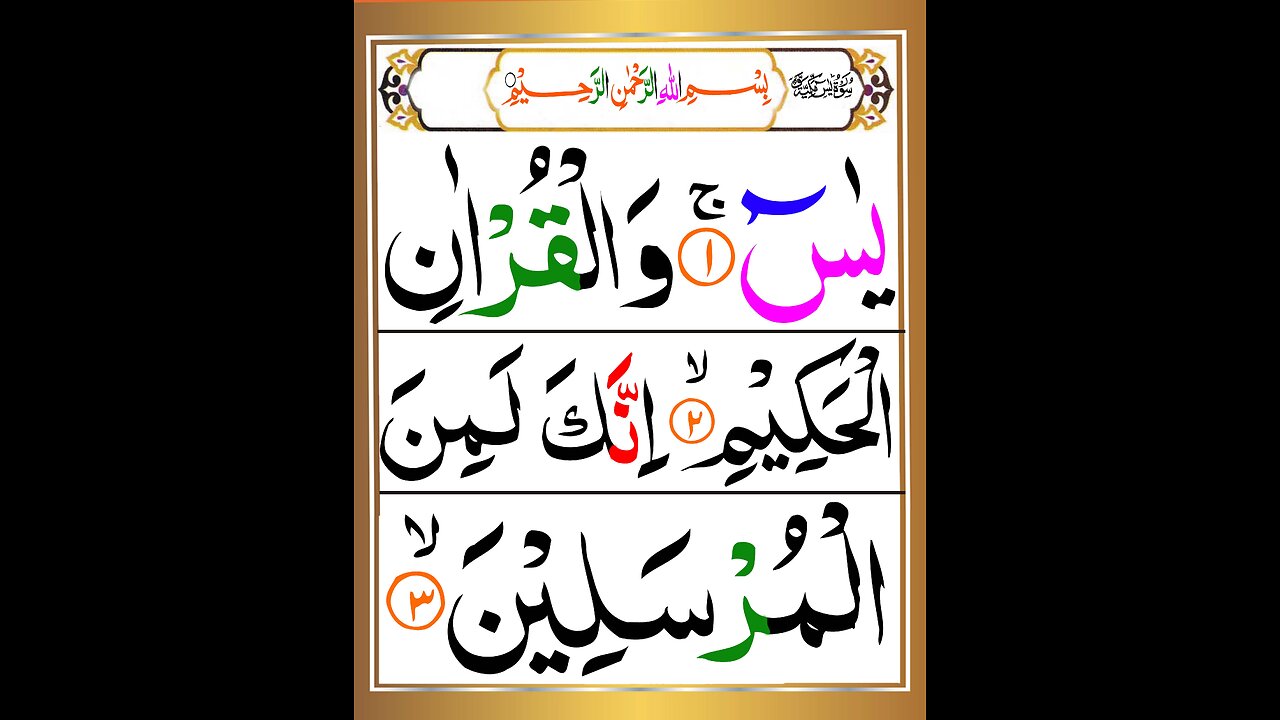 سُوْرَةُ يٰسٓ مَكِّيَّةٌ
بِسْمِ اللهِ الرَّحْمٰنِ الرَّحِيْمِ
يٰسٓ ۚ ﴿١﴾ وَالْقُرْاٰنِ
الْحَكِيْمِ ۙ ﴿٢﴾ اِنَّكَ لَمِنَ
الْمُرْسَلِيْنَ ۙ ﴿٣﴾